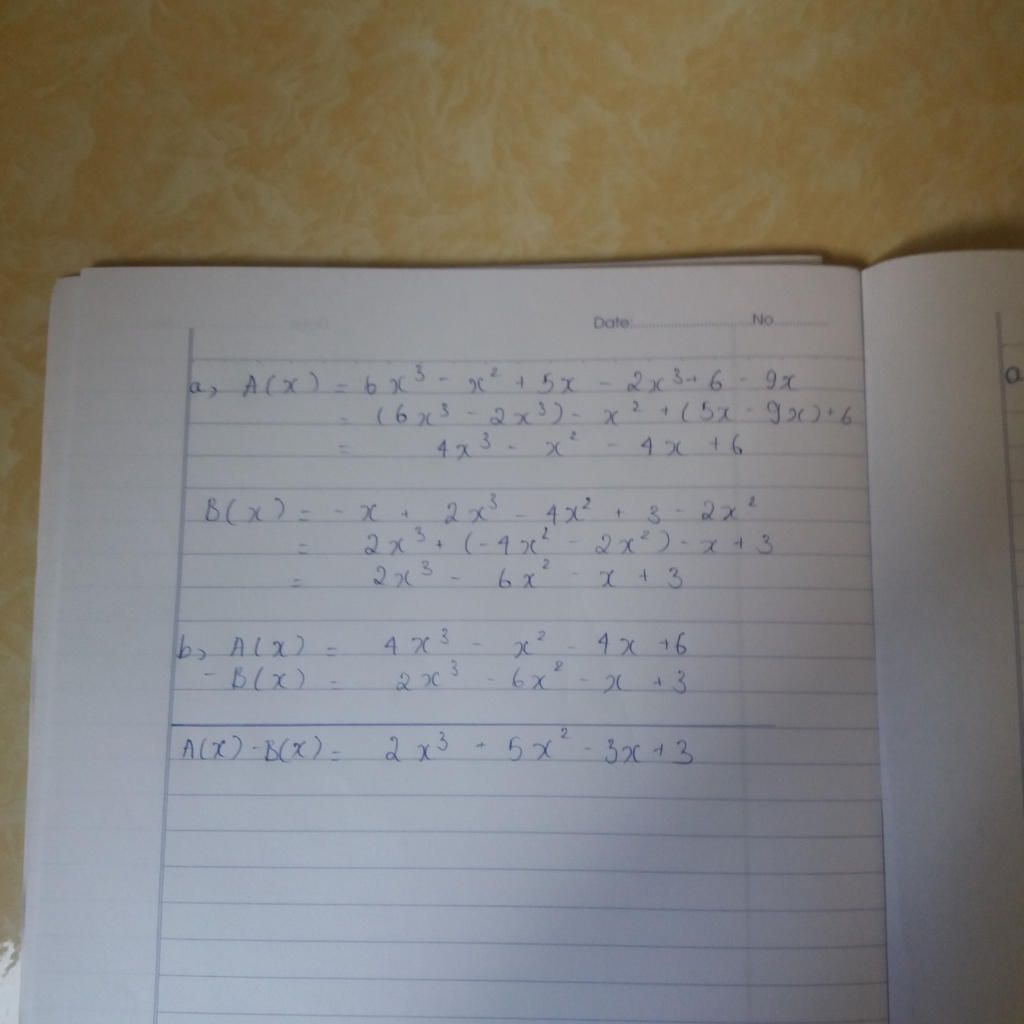 Date: No
a, A(x) = 6x³ - x² + 5x - 2x³ + 6 - 9x
= (6x³ - 2x³) - x² + (5x - 9x) + 6
= 4x³ - x² - 4x + 6
B(x) = - x + 2x³ - 4x² + 3 - 2x²
= 2x³ + (-4x² - 2x²) - x + 3
= 2x³ - 6x² - x + 3
b, A(x) = 4x³ - x² - 4x + 6
- B(x) = 2x³ - 6x² - x + 3
A(x) - B(x) = 2x³ + 5x² - 3x + 3
a